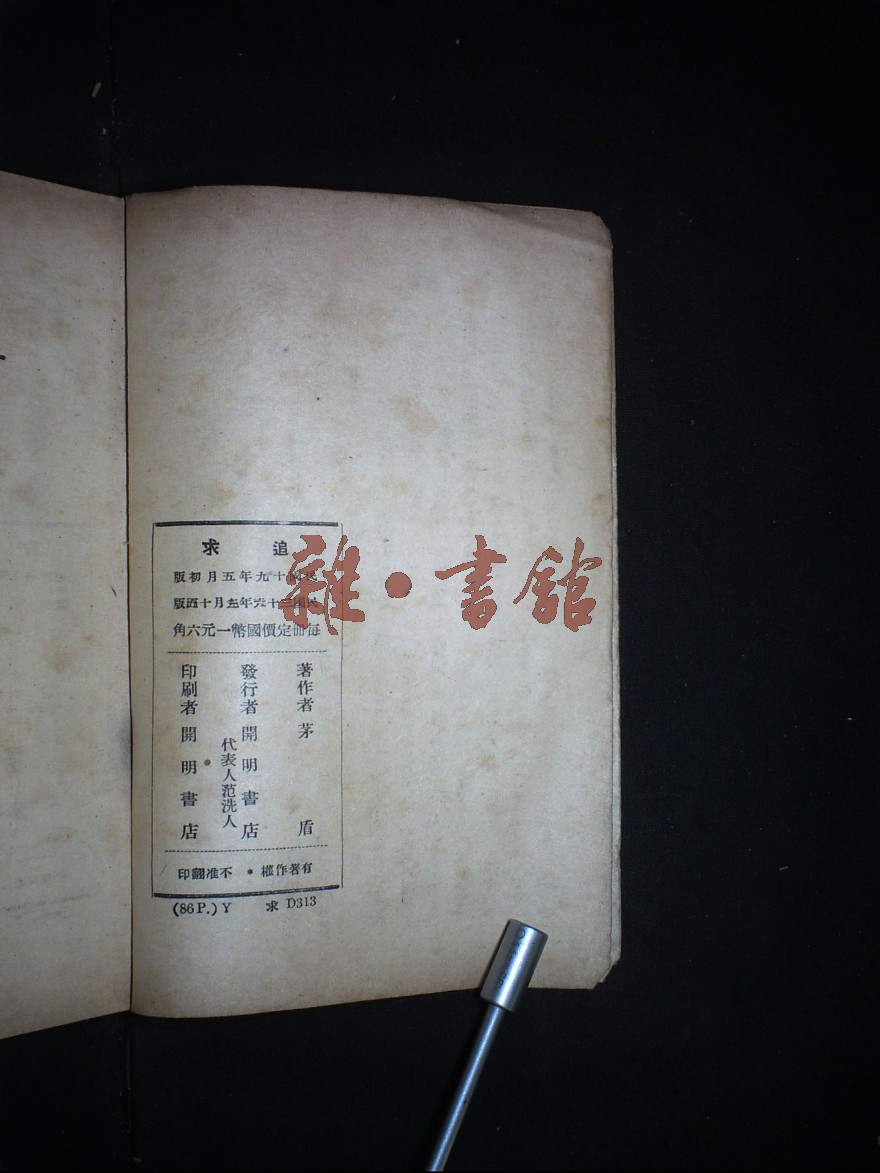 追求
民國十九年五月初版
民國三十六年三月十四版
每冊定價國幣一元六角
著作者 茅盾
發行者 開明書店
代表人范洗人
印刷者 開明書店
有著作權•不准翻印
(86P.)Y 求 D313
雜•書館